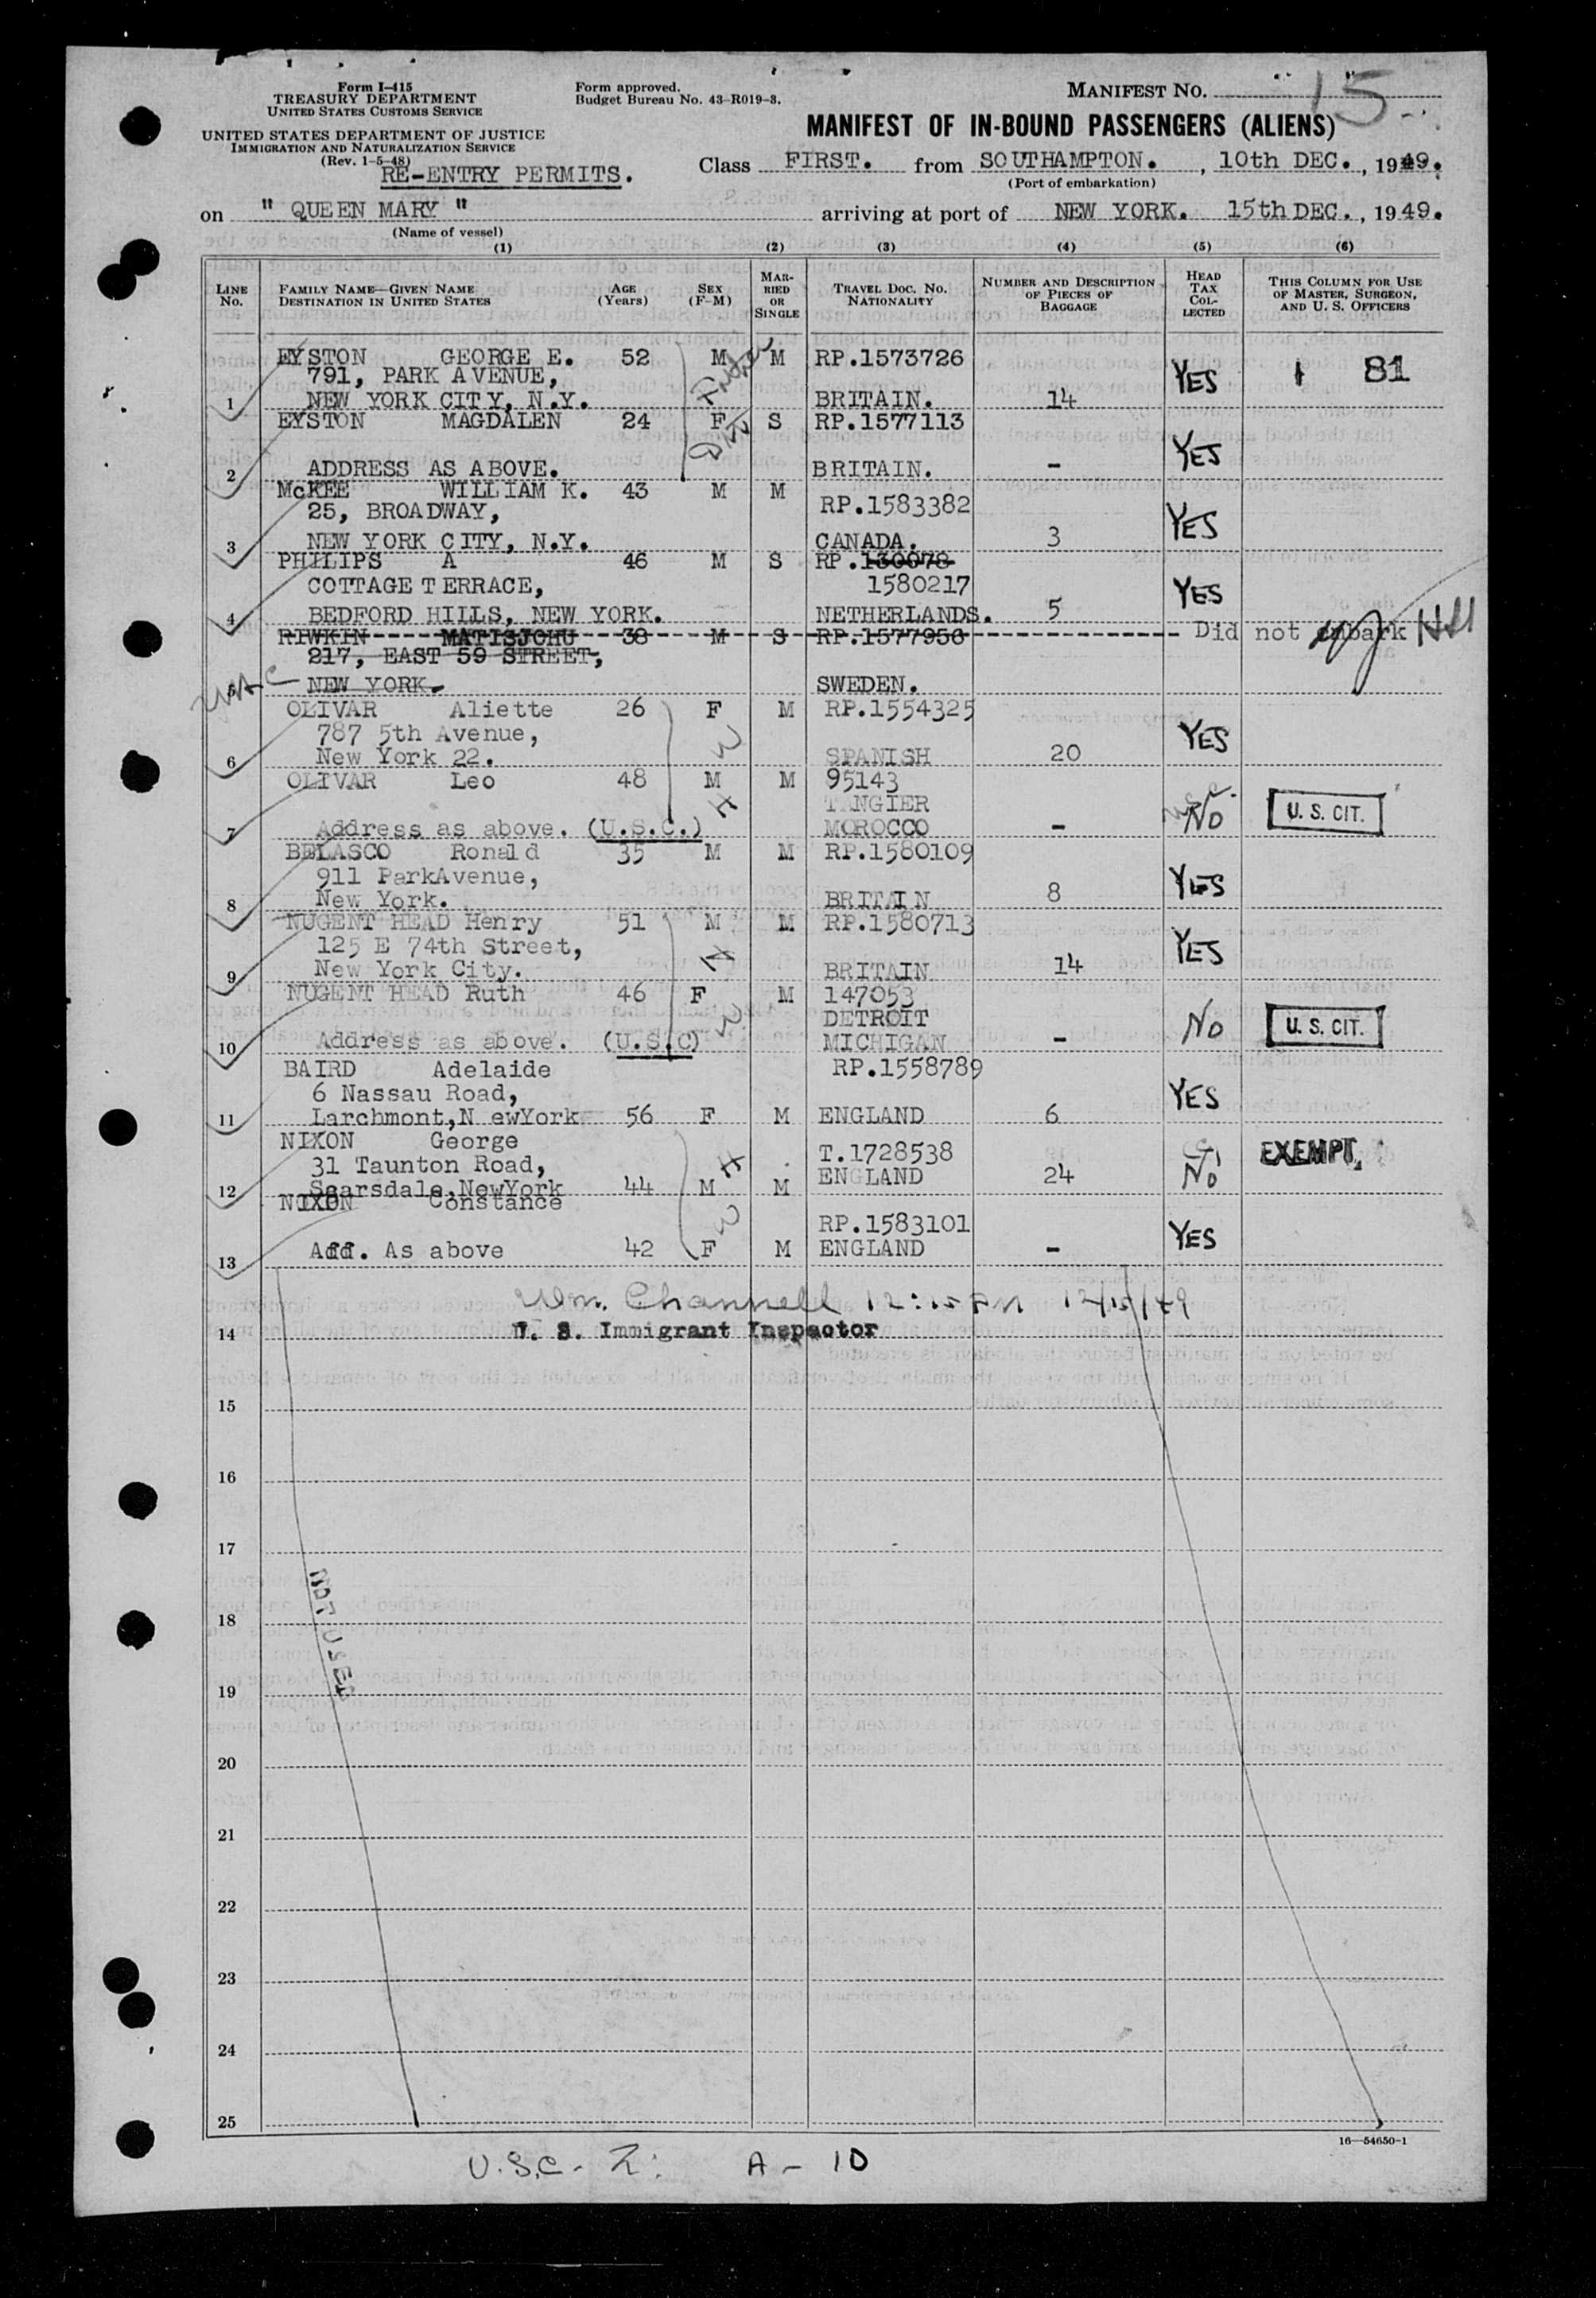 Form I-415
TREASURY DEPARTMENT
UNITED STATES CUSTOMS SERVICE
UNITED STATES DEPARTMENT OF JUSTICE
IMMIGRATION AND NATURALIZATION SERVICE
(Rev. 1-5-48)
RE-ENTRY PERMITS.
Form approved.
Budget Bureau No. 43-R019-3.
MANIFEST NO. 15
MANIFEST OF IN-BOUND PASSENGERS (ALIENS)
Class FIRST. from SOUTHAMPTON. , 10th DEC. , 1949.
(Port of embarkation)
on " QUEEN MARY " arriving at port of NEW YORK. 15th DEC. , 1949.
(Name of vessel)
(1) (2) (3) (4) (5) (6)
LINE No. FAMILY NAME—GIVEN NAME DESTINATION IN UNITED STATES AGE (Years) SEX (F-M) MARRIED OR SINGLE TRAVEL DOC. NO. NATIONALITY NUMBER AND DESCRIPTION OF PIECES OF BAGGAGE HEAD TAX COLLECTED THIS COLUMN FOR USE OF MASTER, SURGEON, AND U. S. OFFICERS
EYSTON GEORGE E. 52 M M RP.1573726
791, PARK AVENUE, YES 1 81
1 NEW YORK CITY, N.Y. BRITAIN. 14
EYSTON MAGDALEN 24 F S RP.1577113
YES
2 ADDRESS AS ABOVE. BRITAIN. -
McKEE WILLIAM K. 43 M M
25, BROADWAY, RP.1583382 YES
3 NEW YORK CITY, N.Y. CANADA. 3
PHILIPS A 46 M S RP.130078
COTTAGE TERRACE, 1580217 YES
4 BEDFORD HILLS, NEW YORK. NETHERLANDS. 5
RIWKIN MATISJOHU 38 M S RP.1577956 Did not embark HH
217, EAST 59 STREET,
5 NEW YORK. SWEDEN.
OLIVAR Aliette 26 F M RP.1554325
787 5th Avenue, YES
6 New York 22. SPANISH 20
OLIVAR Leo 48 M M 95143
TANGIER No U. S. CIT.
7 Address as above. (U.S.C.) MOROCCO -
BELASCO Ronald 35 M M RP.1580109
911 ParkAvenue, YES
8 New York. BRITAIN 8
NUGENT HEAD Henry 51 M M RP.1580713
125 E 74th Street, YES
9 New York City. BRITAIN 14
NUGENT HEAD Ruth 46 F M 147053
DETROIT No U. S. CIT.
10 Address as above. (U.S.C) MICHIGAN -
BAIRD Adelaide RP.1558789
6 Nassau Road, YES
11 Larchmont,N ewYork 56 F M ENGLAND 6
NIXON George T.1728538 EXEMPT
31 Taunton Road, No
12 Scarsdale,NewYork 44 M M ENGLAND 24
NIXON Constance
RP.1583101 YES
13 Add. As above 42 F M ENGLAND -
Wm. Channell 12:15 PM 12/15/49
14 U. S. Immigrant Inspector
15
16
17
NOT USED
18
19
20
21
22
23
24
25
16—54650-1
U.S.C. - 2: A - 10